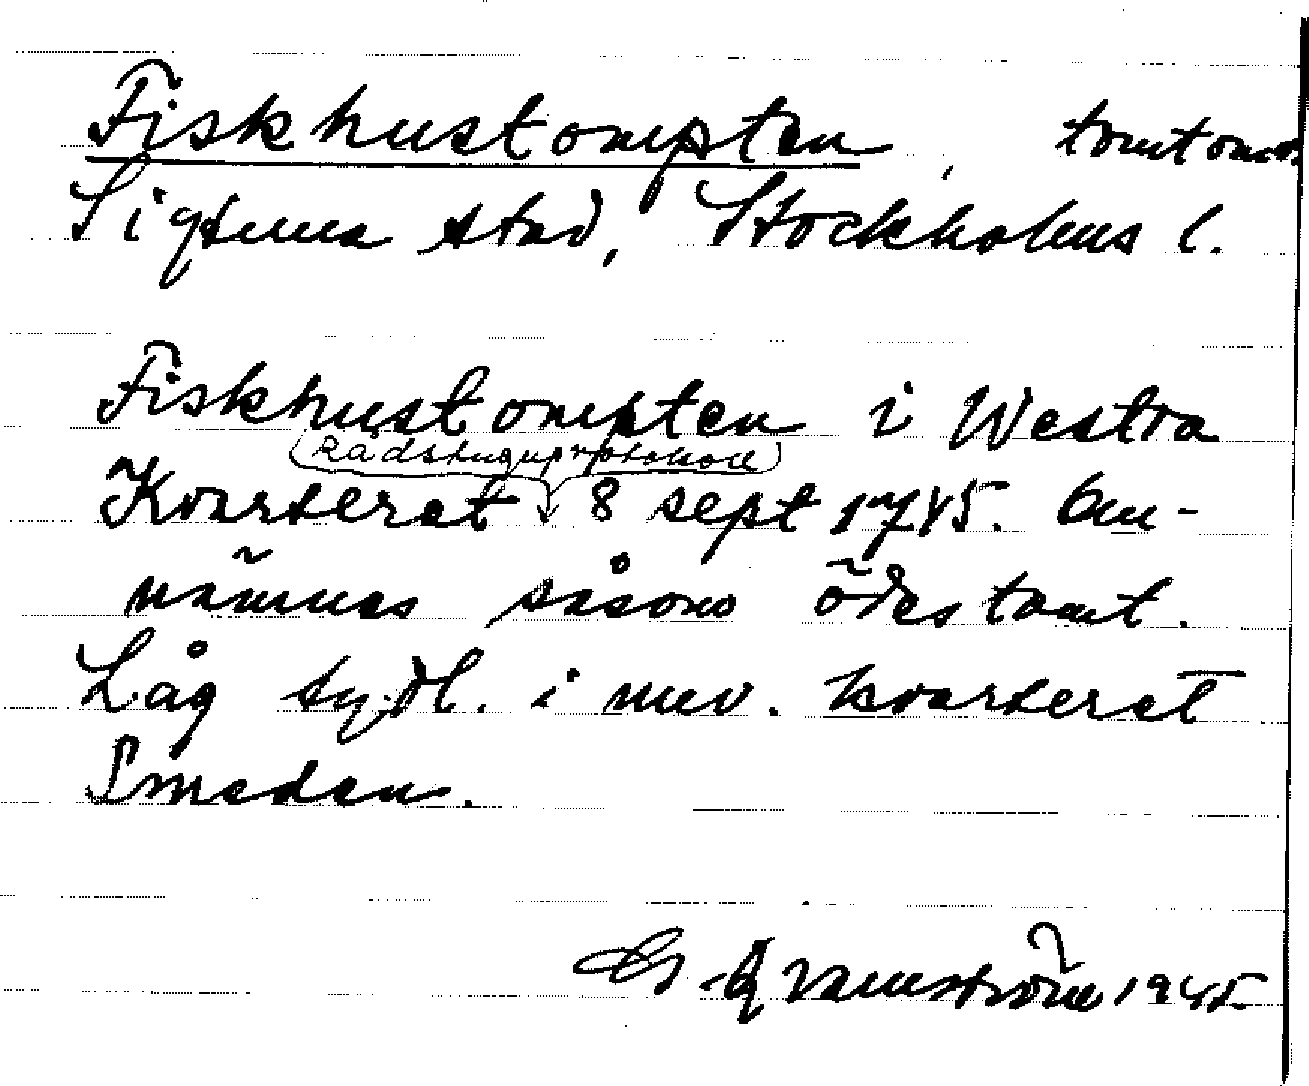 Fiskhustompten, tomtomr.
Sigtuna stad, Stockholms l.
Fiskhustompten i Westra
(Rådstuguprotokoll)
Kvarteret 8 sept 1745. Om-
nämnes såsom ödestomt.
Låg sydl. i nuv. kvarteret
Smeden.
G Qvarnström 1945